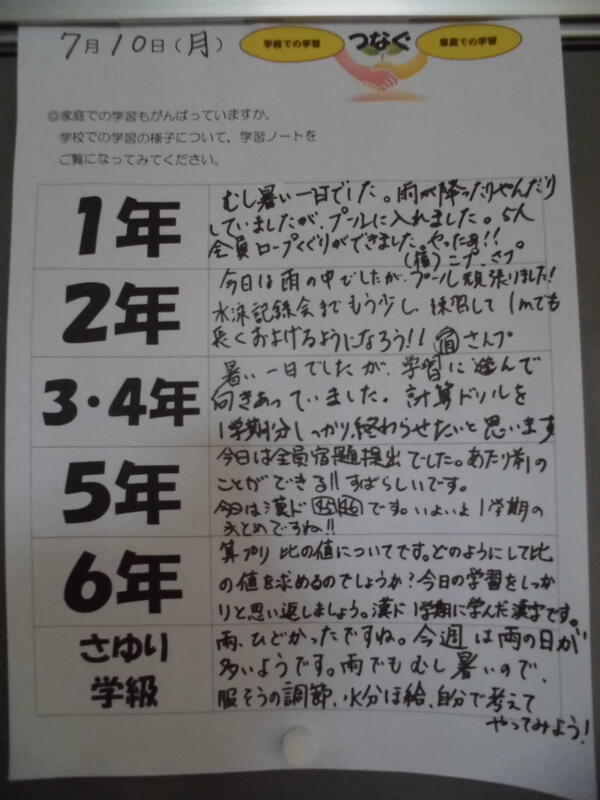 7月10日(月)
学校での学習 つなぐ 家庭での学習
◎家庭での学習もがんばっていますか。
学校での学習の様子について、学習ノートを
ご覧になってみてください。
1年
むし暑い一日でした。雨が降ったりやんだり
していましたが、プールに入れました。5人
全員ロープくぐりができました。やったぁ!!
(宿)こプ、さプ。
2年
今日は雨の中でしたが、プール頑張りました!
水泳記録会までもう少し、練習して1mでも
長くおよげるようになろう!! 宿 さんプ
3・4年
暑い一日でしたが、学習に進んで
向きあっていました。計算ドリルを
1学期分しっかり終わらせたいと思います
5年
今日は全員宿題提出でした。あたり前の
ことができる!!すばらしいです。
今日は漢ド 45 46 です。いよいよ1学期の
まとめですね!!
6年
算プリ 比の値についてです。どのようにして比
の値を求めるのでしょうか?今日の学習をしっか
りと思い返しましょう。漢ド 1学期に学んだ漢字です。
さゆり
学級
雨、ひどかったですね。今週は雨の日が
多いようです。雨でもむし暑いので、
服そうの調節、水分ほ給、自分で考えて
やってみよう!